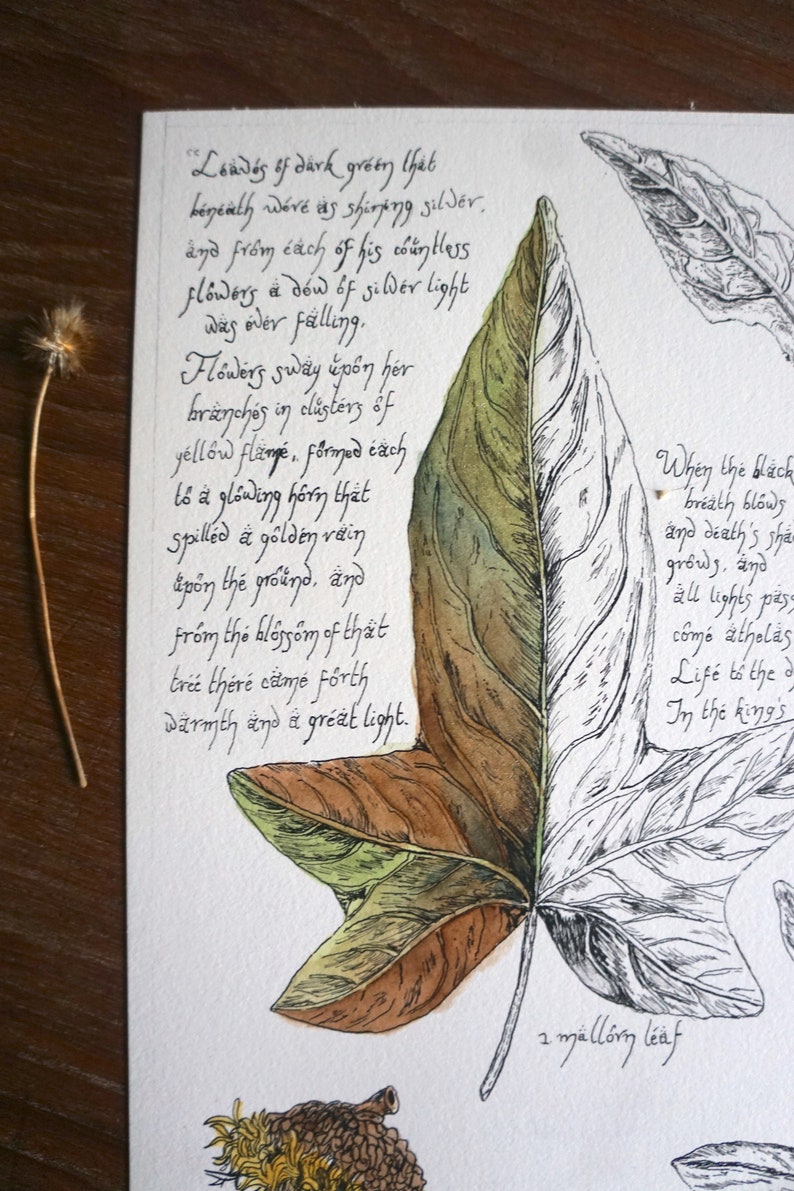 “Leaves of dark green that
beneath were as shining silver,
and from each of his countless
flowers a dew of silver light
was ever falling,
Flowers sway upon her
branches in clusters of
yellow flame, formed each
to a glowing horn that
spilled a golden rain
upon the ground, and
from the blossom of that
tree there came forth
warmth and a great light.
When the black
breath blows
and death's
grows, and
all lights
come athelas
Life to the
In the king's
2. mallorn leaf